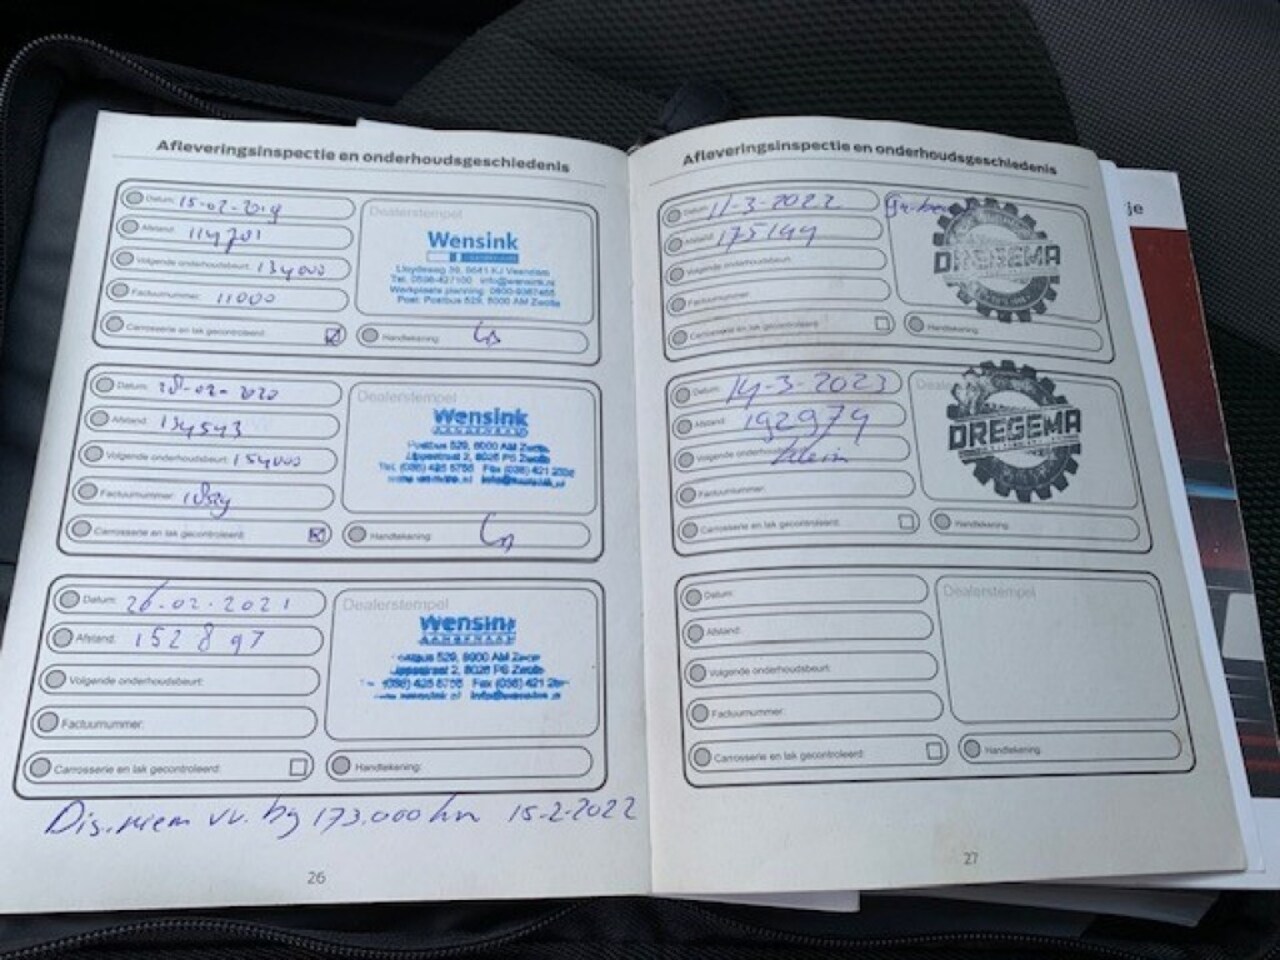 Afleveringsinspectie en onderhoudsgeschiedenis
Datum: 15-02-2019
Afstand: 114701
Volgende onderhoudsbeurt: 134000
Factuurnummer: 11000
Carrosserie en lak gecontroleerd:
Dealerstempel
Wensink
Lloydsweg 39, 9641 KJ Veendam
Tel. 0598-627100 info@wensink.nl
Werkplaats planning: 0800-9367465
Post: Postbus 529, 8000 AM Zwolle
Handtekening:
Datum: 28-02-2020
Afstand: 134543
Volgende onderhoudsbeurt: 154000
Factuurnummer:
Carrosserie en lak gecontroleerd:
Dealerstempel
Wensink
AANGENAAM
Postbus 529, 8000 AM Zwolle
2, 8028 PS Zwolle
Tel. (038) 425 5755 Fax (038) 421
Handtekening:
Datum: 26-02-2021
Afstand: 152897
Volgende onderhoudsbeurt:
Factuurnummer:
Carrosserie en lak gecontroleerd:
Dealerstempel
Wensink
AANGENAAM
529, 8000 AM Zwolle
2, 8028 PS Zwolle
(038) 425 5755 Fax (038) 421
Handtekening:
Dis.riem vv. bij 173.000 km 15-2-2022
26
Afleveringsinspectie en onderhoudsgeschiedenis
Datum: 11-3-2022
Afstand: 175199
Volgende onderhoudsbeurt:
Factuurnummer:
Carrosserie en lak gecontroleerd:
DREGEMA
Handtekening:
Datum: 14-3-2023
Afstand: 192979
Volgende onderhoudsbeurt: klein
Factuurnummer:
Carrosserie en lak gecontroleerd:
DREGEMA
Handtekening:
Datum:
Afstand:
Volgende onderhoudsbeurt:
Factuurnummer:
Carrosserie en lak gecontroleerd:
Dealerstempel
Handtekening:
27
je